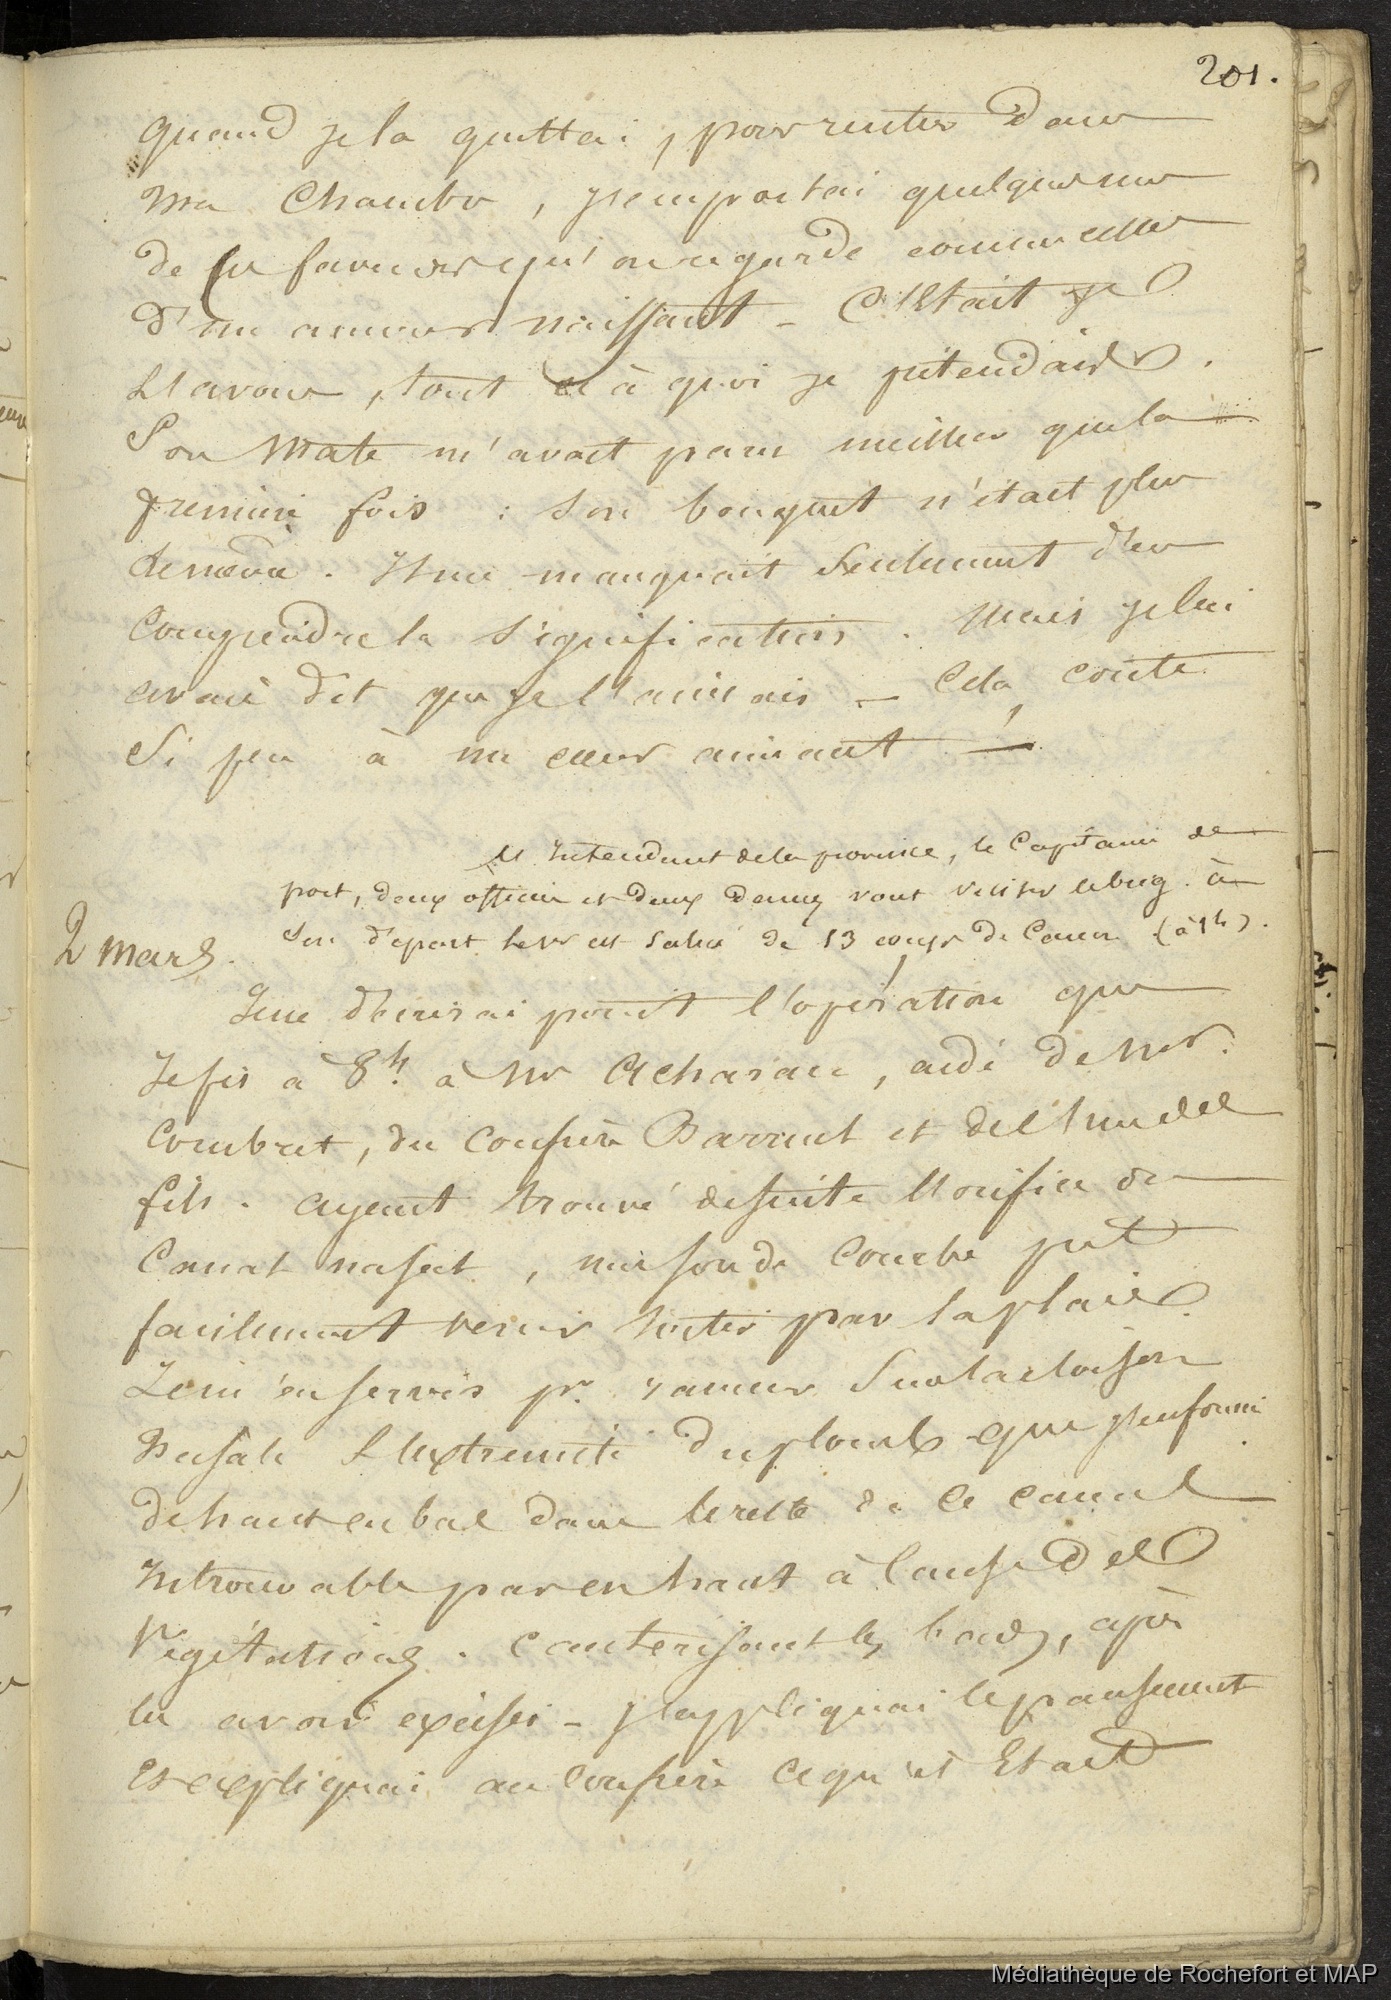 201.
quand je la quittai, pour rentrer dans
ma chambre, j'emportai quelques unes
de ces faveurs qu'on regarde comme celles
d'un amour naissant - C'était je
l'avoue, tout ce à quoi je prétendais.
Son mate m'avait paru meilleur que la
première fois : son bouquet n'était plus
de même. Il me manquait seulement d'en
comprendre la signification. Mais je lui
avais dit que je l'aimais - Cela coûte
si peu à un cœur aimant !
L'Intendant de la province, le Capitaine de
port, deux officiers et deux dames vont visiter le brig. à
son départ le 1er est salué de 13 coups de canon (à 1h).
2 mars.
Je ne décrirai point l'opération que
je fis à 8h. à Mr Acharau, aidé de Mr.
Combret, du confrère Barrual et de l'un des
fils. ayant trouvé de suite l'orifice du
Canal nasal, ma sonde courbe put
facilement venir sortir par la plaie
Je m'en servis pr. ramener sur la cloison
nasale l'extrémité du plomb que j'enfonçai
de haut en bas dans le reste de ce canal
introuvable par en haut à cause des
végétations. cautérisant les bords, après
les avoir excisés - j'appliquai le pansement
et expliquai au confrère ce qu'il était
Médiathèque de Rochefort et MAP